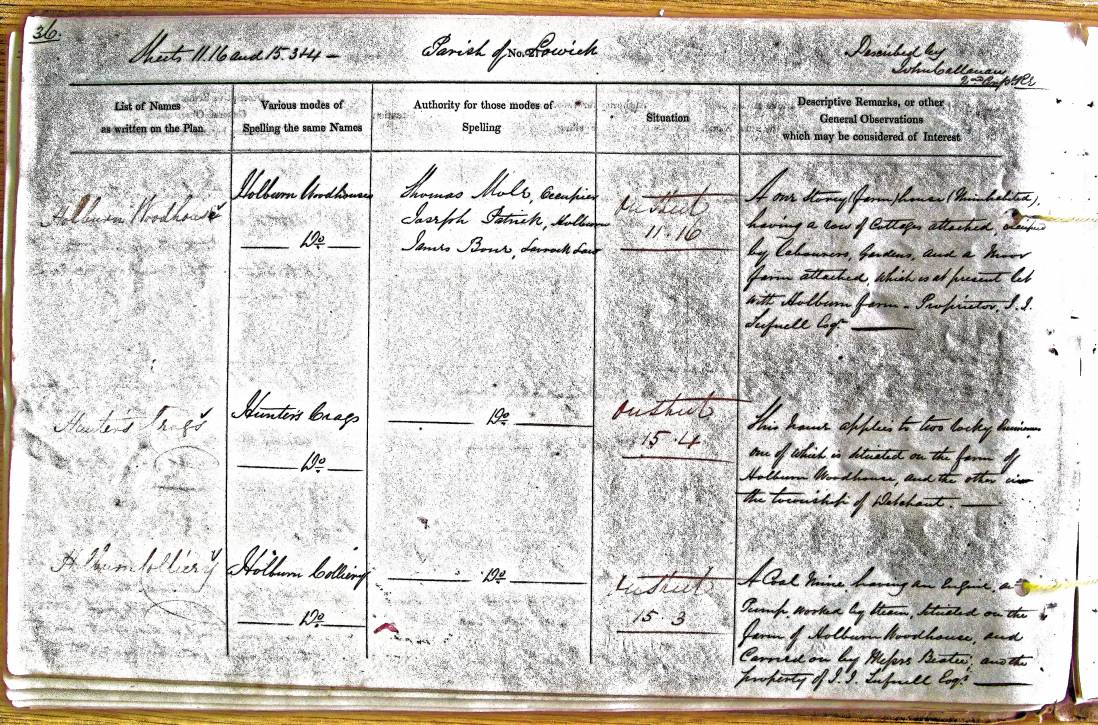 36.
Sheets 11.16 and 15.3+4 -
Parish of No. Lowick
Described by
John Callanan
List of Names
as written on the Plan
Various modes of
Spelling the same Names
Authority for those modes of
Spelling
Situation
Descriptive Remarks, or other
General Observations
which may be considered of Interest
Holburn Woodhouse
Holburn Woodhouse
Do
Thomas Mole, Occupier
Joseph Patrick, Holburn
James Bour, Laverock Law
On Sheet
11.16
A one Storey (farm) house (Uninhabited),
having a row of Cottages attached, Occupied
by Labourers, Gardens, and a Moor
farm attached, which is at present let
with Holburn farm - Proprietor, J.J.
Tufnell Esqr.
Hunter's Crags
Hunter's Crags
Do
Do
On Sheet
15.4
This name applies to two rocky
one of which is situated on the farm of
Holburn Woodhouse, and the other in
the township of Detchant.
Holburn Colliery
Holburn Colliery
Do
Do
On Sheet
15.3
A Coal Mine having an Engine, and
Pump, worked by Steam, situated on the
farm of Holburn Woodhouse, and
Carried on by Messrs and the
property of J.J. Tufnell Esqr.